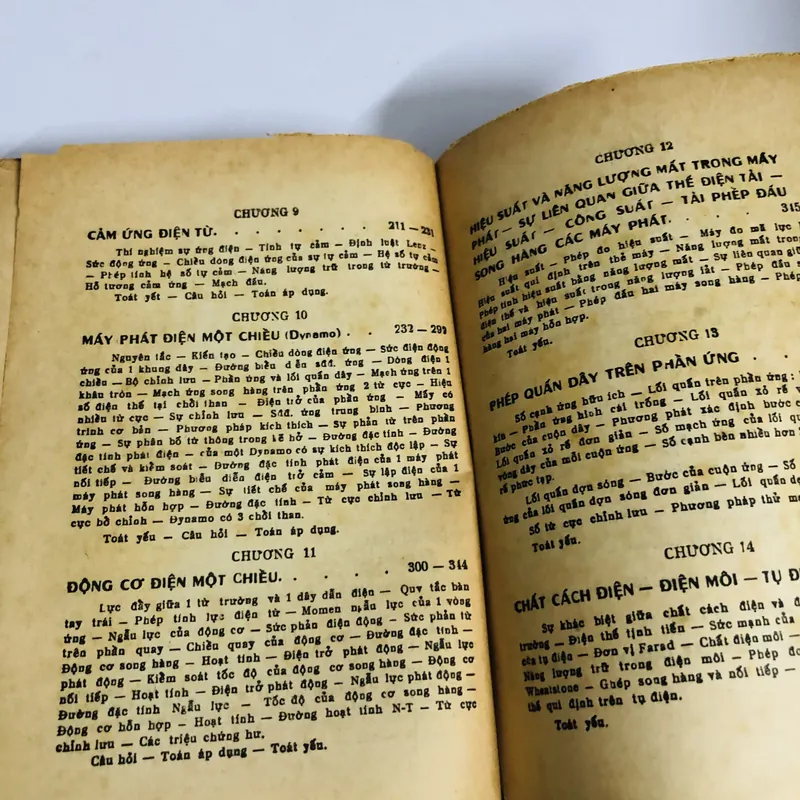 CHƯƠNG 9
CẢM ỨNG ĐIỆN TỪ. . . . . . . 211 — 231
Thí nghiệm sự ứng điện — Tính tự cảm — Định luật Lenz —
Sức động ứng — Chiều dòng điện ứng của sự tự cảm — Hệ số tự cảm
— Phép tính hệ số tự cảm — Năng lượng trữ trong từ trường —
Hỗ tương cảm ứng — Mạch dầu.
Toát yết — Câu hỏi — Toán áp dụng.
CHƯƠNG 10
MÁY PHÁT ĐIỆN MỘT CHIỀU (Dynamo) . . 232 — 299
Nguyên tắc — Kiến tạo — Chiều dòng điện ứng — Sức điện động
ứng của 1 khung dây — Đường biểu diễn sđđ. ứng — Dòng điện 1
chiều — Bộ chỉnh lưu — Phần ứng và lối quấn dây — Mạch ứng trên 1
khâu tròn — Mạch ứng song hàng trên phần ứng 2 từ cực — Hiệu
số điện thế tại chổi than — Điện trở của phần ứng — Máy có
nhiều từ cực — Sự chỉnh lưu — Sđđ. ứng trung bình — Phương
trình cơ bản — Phương pháp kích thích — Sự phản từ trên phần
ứng — Sự phân bố từ thông trong kẽ hở — Đường đặc tính — Đường
đặc tính phát điện — của một Dynamo có sự kích thích độc lập — Sự
tiết chế và kiểm soát — Đường đặc tính phát điện của 1 máy phát
nối tiếp — Đường biểu diễn điện trở cảm — Sự lập điện của 1
máy phát song hàng — Sự tiết chế của máy phát song hàng —
Máy phát hỗn hợp — Đường đặc tính — Từ cực chỉnh lưu — Từ
cực bổ chỉnh — Dynamo có 3 chổi than.
Toát yếu — Câu hỏi — Toán áp dụng.
CHƯƠNG 11
ĐỘNG CƠ ĐIỆN MỘT CHIỀU. . . . . 300 — 344
Lực đẩy giữa 1 từ trường và 1 dây dẫn điện — Quy tắc bàn
tay trái — Phép tính lực điện từ — Momen ngẫu lực của 1 vòng
ứng — Ngẫu lực của động cơ — Sức phản điện động — Sức phản từ
trên phần quay — Chiều quay của động cơ — Đường đặc tính —
Động cơ song hàng — Hoạt tính — Điện trở phát động — Ngẫu lực
phát động — Kiểm soát tốc độ của động cơ song hàng — Động cơ
nối tiếp — Hoạt tính — Điện trở phát động — Ngẫu lực phát động —
Đường đặc tính Ngẫu lực — Tốc độ của động cơ song hàng —
Động cơ hỗn hợp — Hoạt tính — Đường hoạt tính N-T — Từ cực
chỉnh lưu — Các triệu chứng hư.
Câu hỏi — Toán áp dụng — Toát yếu.
CHƯƠNG 12
HIỆU SUẤT VÀ NĂNG LƯỢNG MẤT TRONG MÁY
PHÁT — SỰ LIÊN QUAN GIỮA THẾ ĐIỆN TẢI —
HIỆU SUẤT — CÔNG SUẤT — TẢI PHÉP ĐẤU
SONG HÀNG CÁC MÁY PHÁT. . . . . 345
Hiệu suất — Phép đo hiệu suất — Máy đo mã lực
Hiệu suất qui định trên thẻ máy — Năng lượng mất trong
Phép tính hiệu suất bằng năng lượng mất — Sự liên quan giữa
điện thế và hiệu suất trong năng lượng lắt — Phép đấu
của hai máy phát — Phép đấu hai máy song hàng — Phép
hàng hai máy hỗn hợp.
Toát yếu.
CHƯƠNG 13
PHÉP QUẤN DÂY TRÊN PHẦN ỨNG . .
Số cạnh ứng hữu ích — Lối quấn trên phần ứng :
kín — Phần ứng hình cái trống — Lối quấn xỏ rế
Bước của cuộn dây — Phương phát xác định bước
Lối quấn xỏ rế đơn giản — Số mạch ứng của lối
vòng dây của mỗi cuộn ứng — Số cạnh bên nhiều hơn 2
rế phức tạp.
Lối quấn dợn sóng — Bước của cuộn ứng — Số
ứng của lối quấn dợn sóng đơn giản — Lối quấn
Số từ cực chỉnh lưu — Phương pháp thử
Toát yếu.
CHƯƠNG 14
CHẤT CÁCH ĐIỆN — ĐIỆN MÔI — TỤ
Sự khác biệt giữa chất cách điện và
trường — Điện thế tịnh tiến — Sức mạnh của
của tụ điện — Đơn vị Farad — Chất điện môi —
Năng lượng trữ trong điện môi — Phép đo
Wheatstone — Ghép song hàng và nối tiếp —
thế qui định trên tụ điện.
Toát yếu.